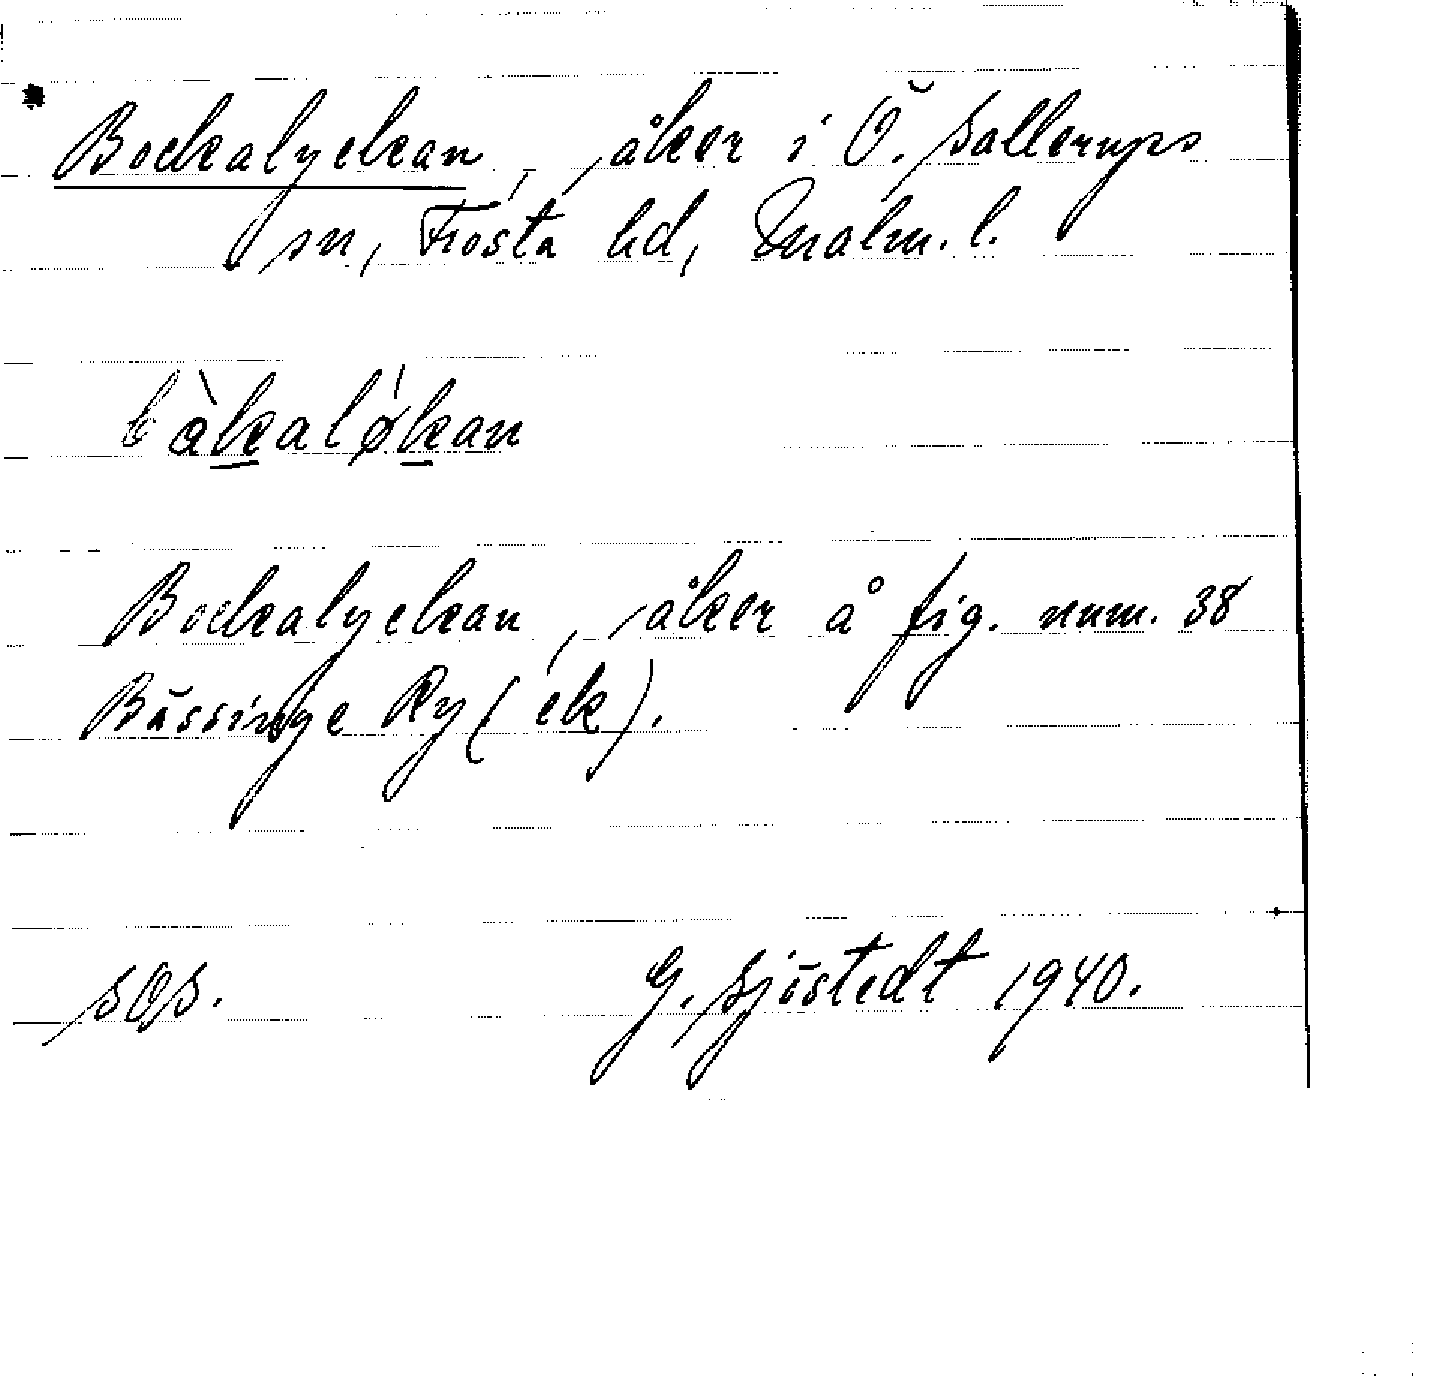 Bockalyckan, åker i Ö. Sallerups
sn, Frosta hd, Malm. l.
bàkaløkan
Bockalyckan, åker å fig. num. 38
Bässinge Ry (ek).
SOS. G. Sjöstedt 1940.